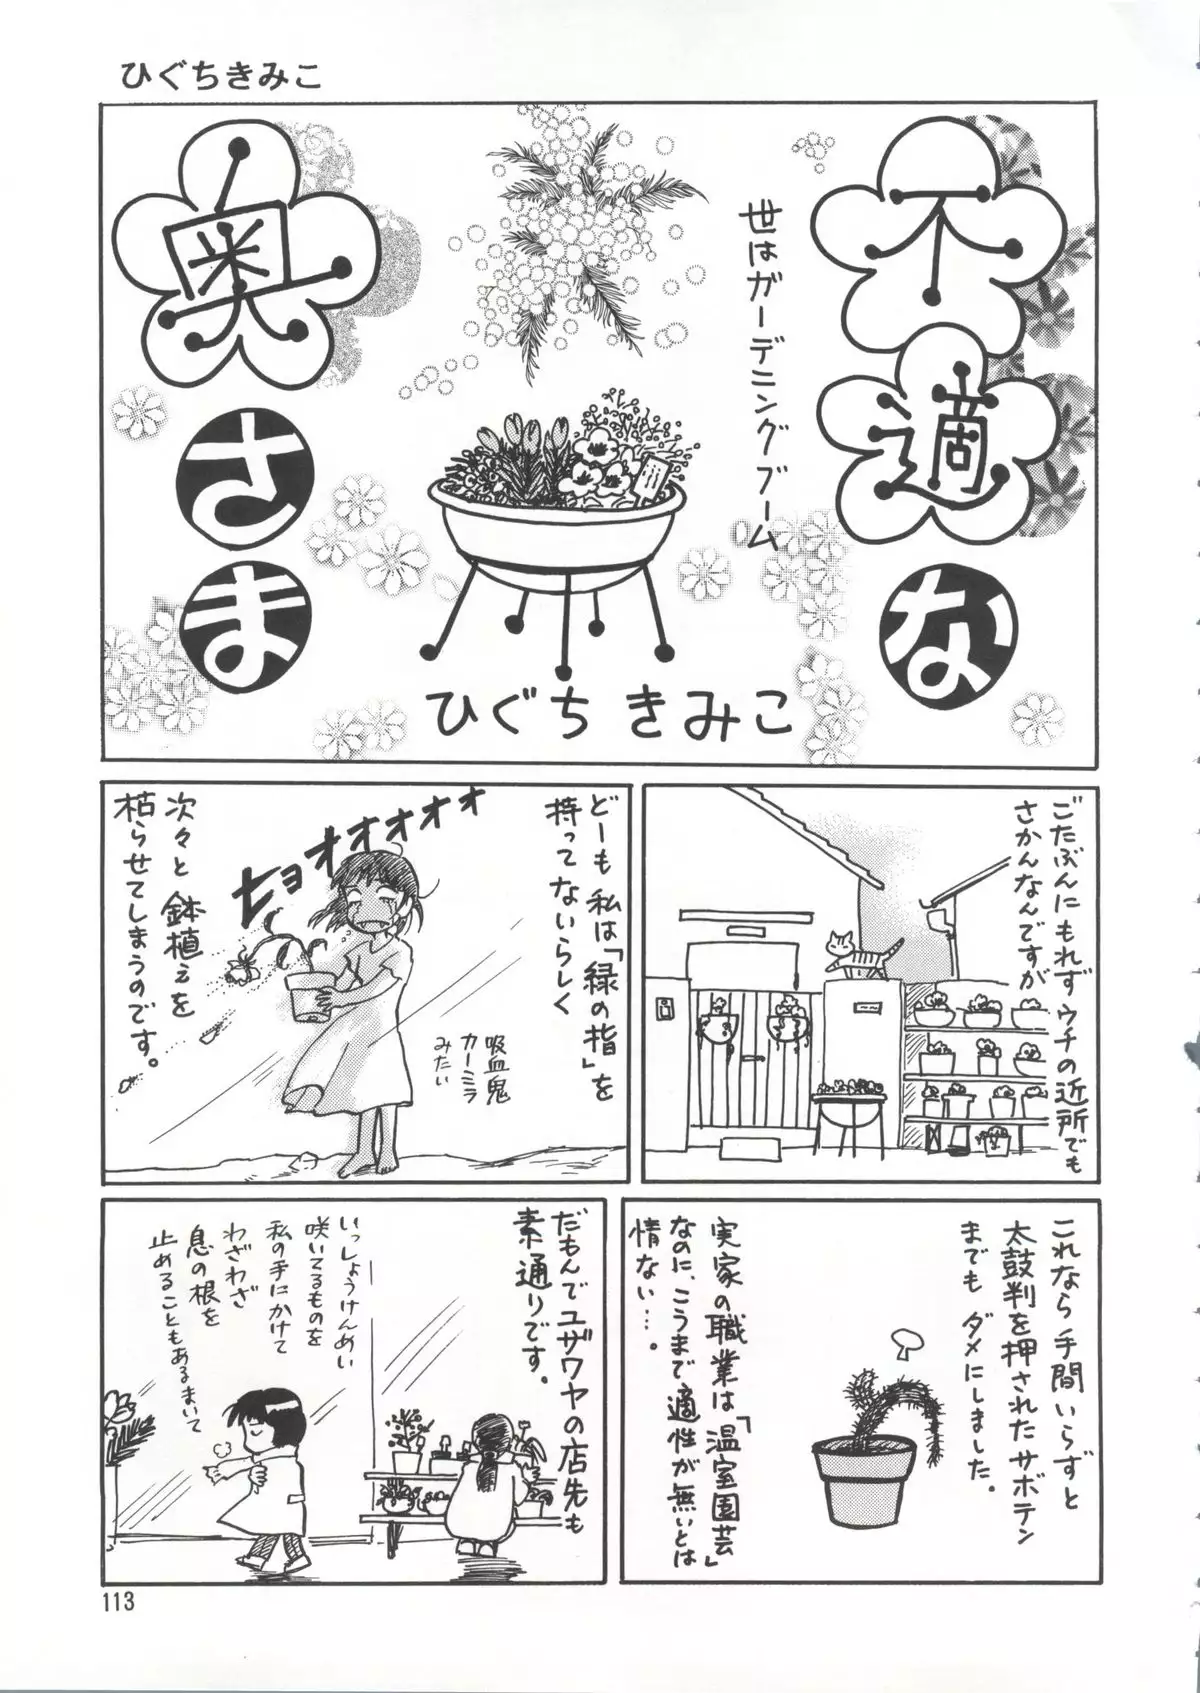 ひぐちきみこ
不適な
奥さま
世はガーデニングブーム
ひぐちきみこ
ごたぶんにもれずウチの近所でも
さかんなんですが
どーも私は「緑の指」を
持ってないらしく
ヒョオオオオオ
吸血鬼
カーミラ
みたい
次々と鉢植えを
枯らせてしまうのです。
これなら手間いらずと
太鼓判を押されたサボテン
までもダメにしました。
実家の職業は「温室園芸」
なのに、こうまで適性が無いとは
情ない…。
だもんでユザワヤの店先も
素通りです。
いっしょうけんめい
咲いてるものを
私の手にかけて
わざわざ
息の根を
止めることもあるまいて
113